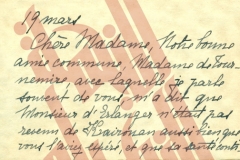 19 mars
Chère Madame, Notre bonne
amie commune, Madame de Tour-
nemire, avec laquelle je parle
souvent de vous, m'a dit que
Monsieur d'Erlanger n'était pas
revenu de Kairouan aussi bien que
vous l'aviez espéré, et que sa santé